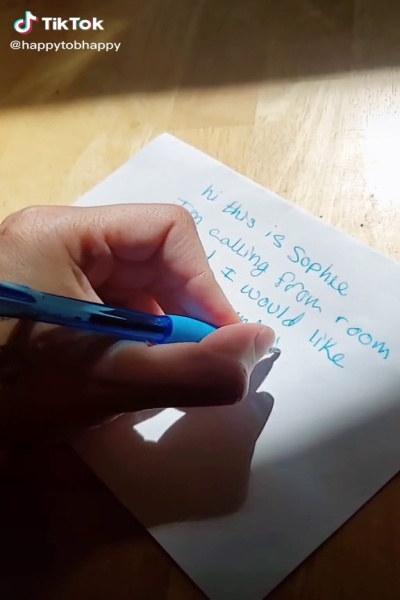 TikTok
@happytobhappy
hi this is Sophie
I'm calling from room
I would like